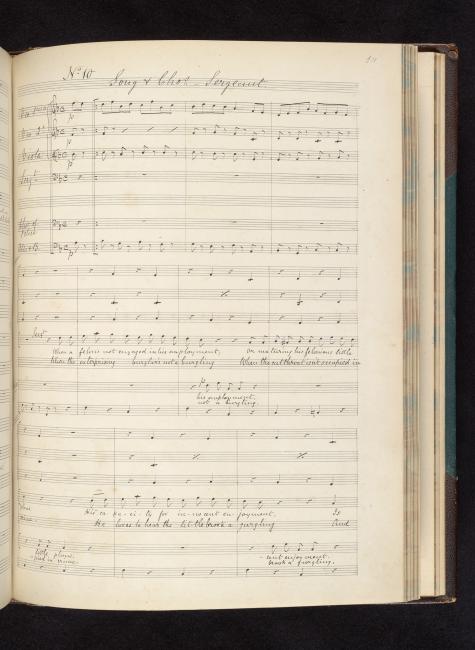 No 10
Song & Chos Sergeant.
Viola
Sergt.
Chos of Police
p
p
p
p
Sergt
When a felon's not engaged in his employment, or maturing his felonious little
When the enterprising burglar's not a burgling When the cut throat isn't occupied in
his employment.
not a burgling.
His ca-pa-ci-ty for in-nocent en-joyment, Is
He loves to hear the lit-tle brook a gurgling And
little plans
- cent enjoyment.
brook a gurgling.